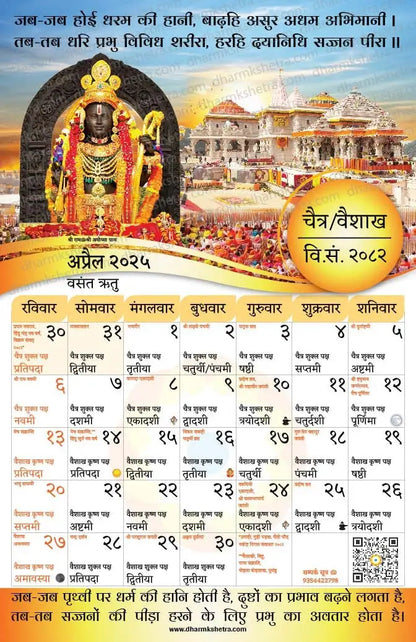 जब-जब होई धरम की हानी, बाढ़हि असुर अधम अभिमानी ।
तब-तब धरि प्रभु विविध शरीरा, हरहि दयानिधि सज्जन पीरा ॥
चैत्र/वैशाख
वि.सं. २०८२
अप्रैल २०२५
वसंत ऋतु
रविवार सोमवार मंगलवार बुधवार गुरुवार शुक्रवार शनिवार
३० ३१ १ २ ३ ४ ५
चैत्र शुक्ल पक्ष चैत्र शुक्ल पक्ष चैत्र शुक्ल पक्ष चैत्र शुक्ल पक्ष चैत्र शुक्ल पक्ष चैत्र शुक्ल पक्ष चैत्र शुक्ल पक्ष
प्रतिपदा द्वितीया तृतीया चतुर्थी/पंचमी षष्ठी सप्तमी अष्टमी
६ ७ ८ ९ १० ११ १२
चैत्र शुक्ल पक्ष चैत्र शुक्ल पक्ष चैत्र शुक्ल पक्ष चैत्र शुक्ल पक्ष चैत्र शुक्ल पक्ष चैत्र शुक्ल पक्ष चैत्र शुक्ल पक्ष
नवमी दशमी एकादशी द्वादशी त्रयोदशी चतुर्दशी पूर्णिमा
१३ १४ १५ १६ १७ १८ १९
वैशाख कृष्ण पक्ष वैशाख कृष्ण पक्ष वैशाख कृष्ण पक्ष वैशाख कृष्ण पक्ष वैशाख कृष्ण पक्ष वैशाख कृष्ण पक्ष वैशाख कृष्ण पक्ष
प्रतिपदा प्रतिपदा द्वितीया तृतीया चतुर्थी पंचमी षष्ठी
२० २१ २२ २३ २४ २५ २६
वैशाख कृष्ण पक्ष वैशाख कृष्ण पक्ष वैशाख कृष्ण पक्ष वैशाख कृष्ण पक्ष वैशाख कृष्ण पक्ष वैशाख कृष्ण पक्ष वैशाख कृष्ण पक्ष
सप्तमी अष्टमी नवमी दशमी एकादशी द्वादशी त्रयोदशी
२७ २८ २९ ३०
वैशाख कृष्ण पक्ष वैशाख शुक्ल पक्ष वैशाख शुक्ल पक्ष वैशाख शुक्ल पक्ष
अमावस्या प्रतिपदा द्वितीया तृतीया
सम्पर्क सूत्र
9354422798
जब-जब पृथ्वी पर धर्म की हानि होती है, दुष्टों का प्रभाव बढ़ने लगता है,
तब-तब सज्जनों की पीड़ा हरने के लिए प्रभु का अवतार होता है।
www.dharmkshetra.com